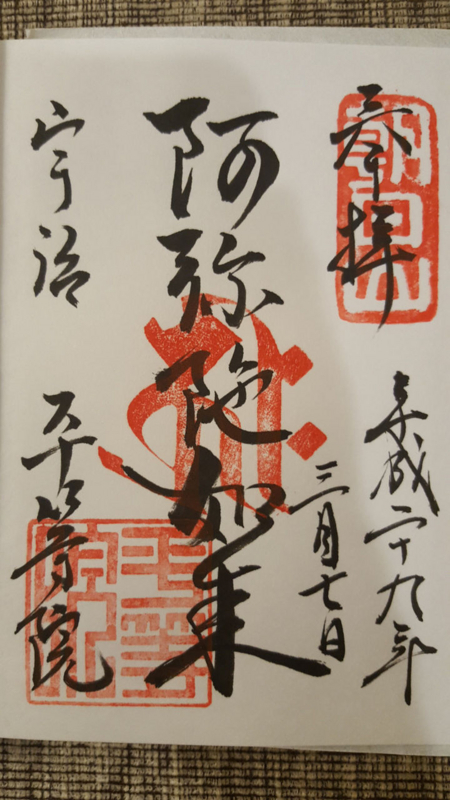 奉拝
平成二十九年
三月七日
阿弥陀如来
宇治 平等院
朝日山